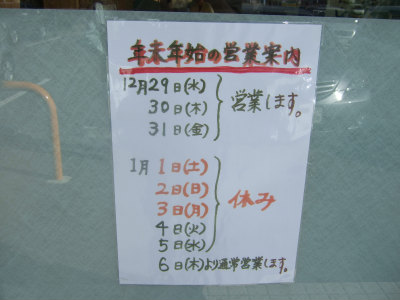 年末年始の営業案内
12月29日(水)
30日(木)
31日(金)
営業します。
1月1日(土)
2日(日)
3日(月)
4日(火)
5日(水)
休み
6日(木)より通常営業します。